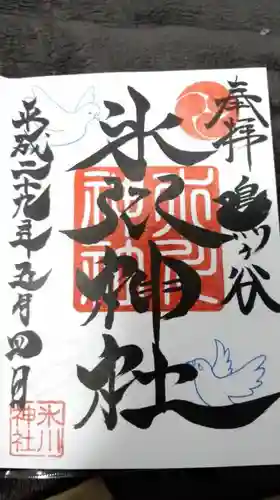 奉拝 鳩ヶ谷
氷川神社
氷川神社
平成二十九年五月四日
氷川神社